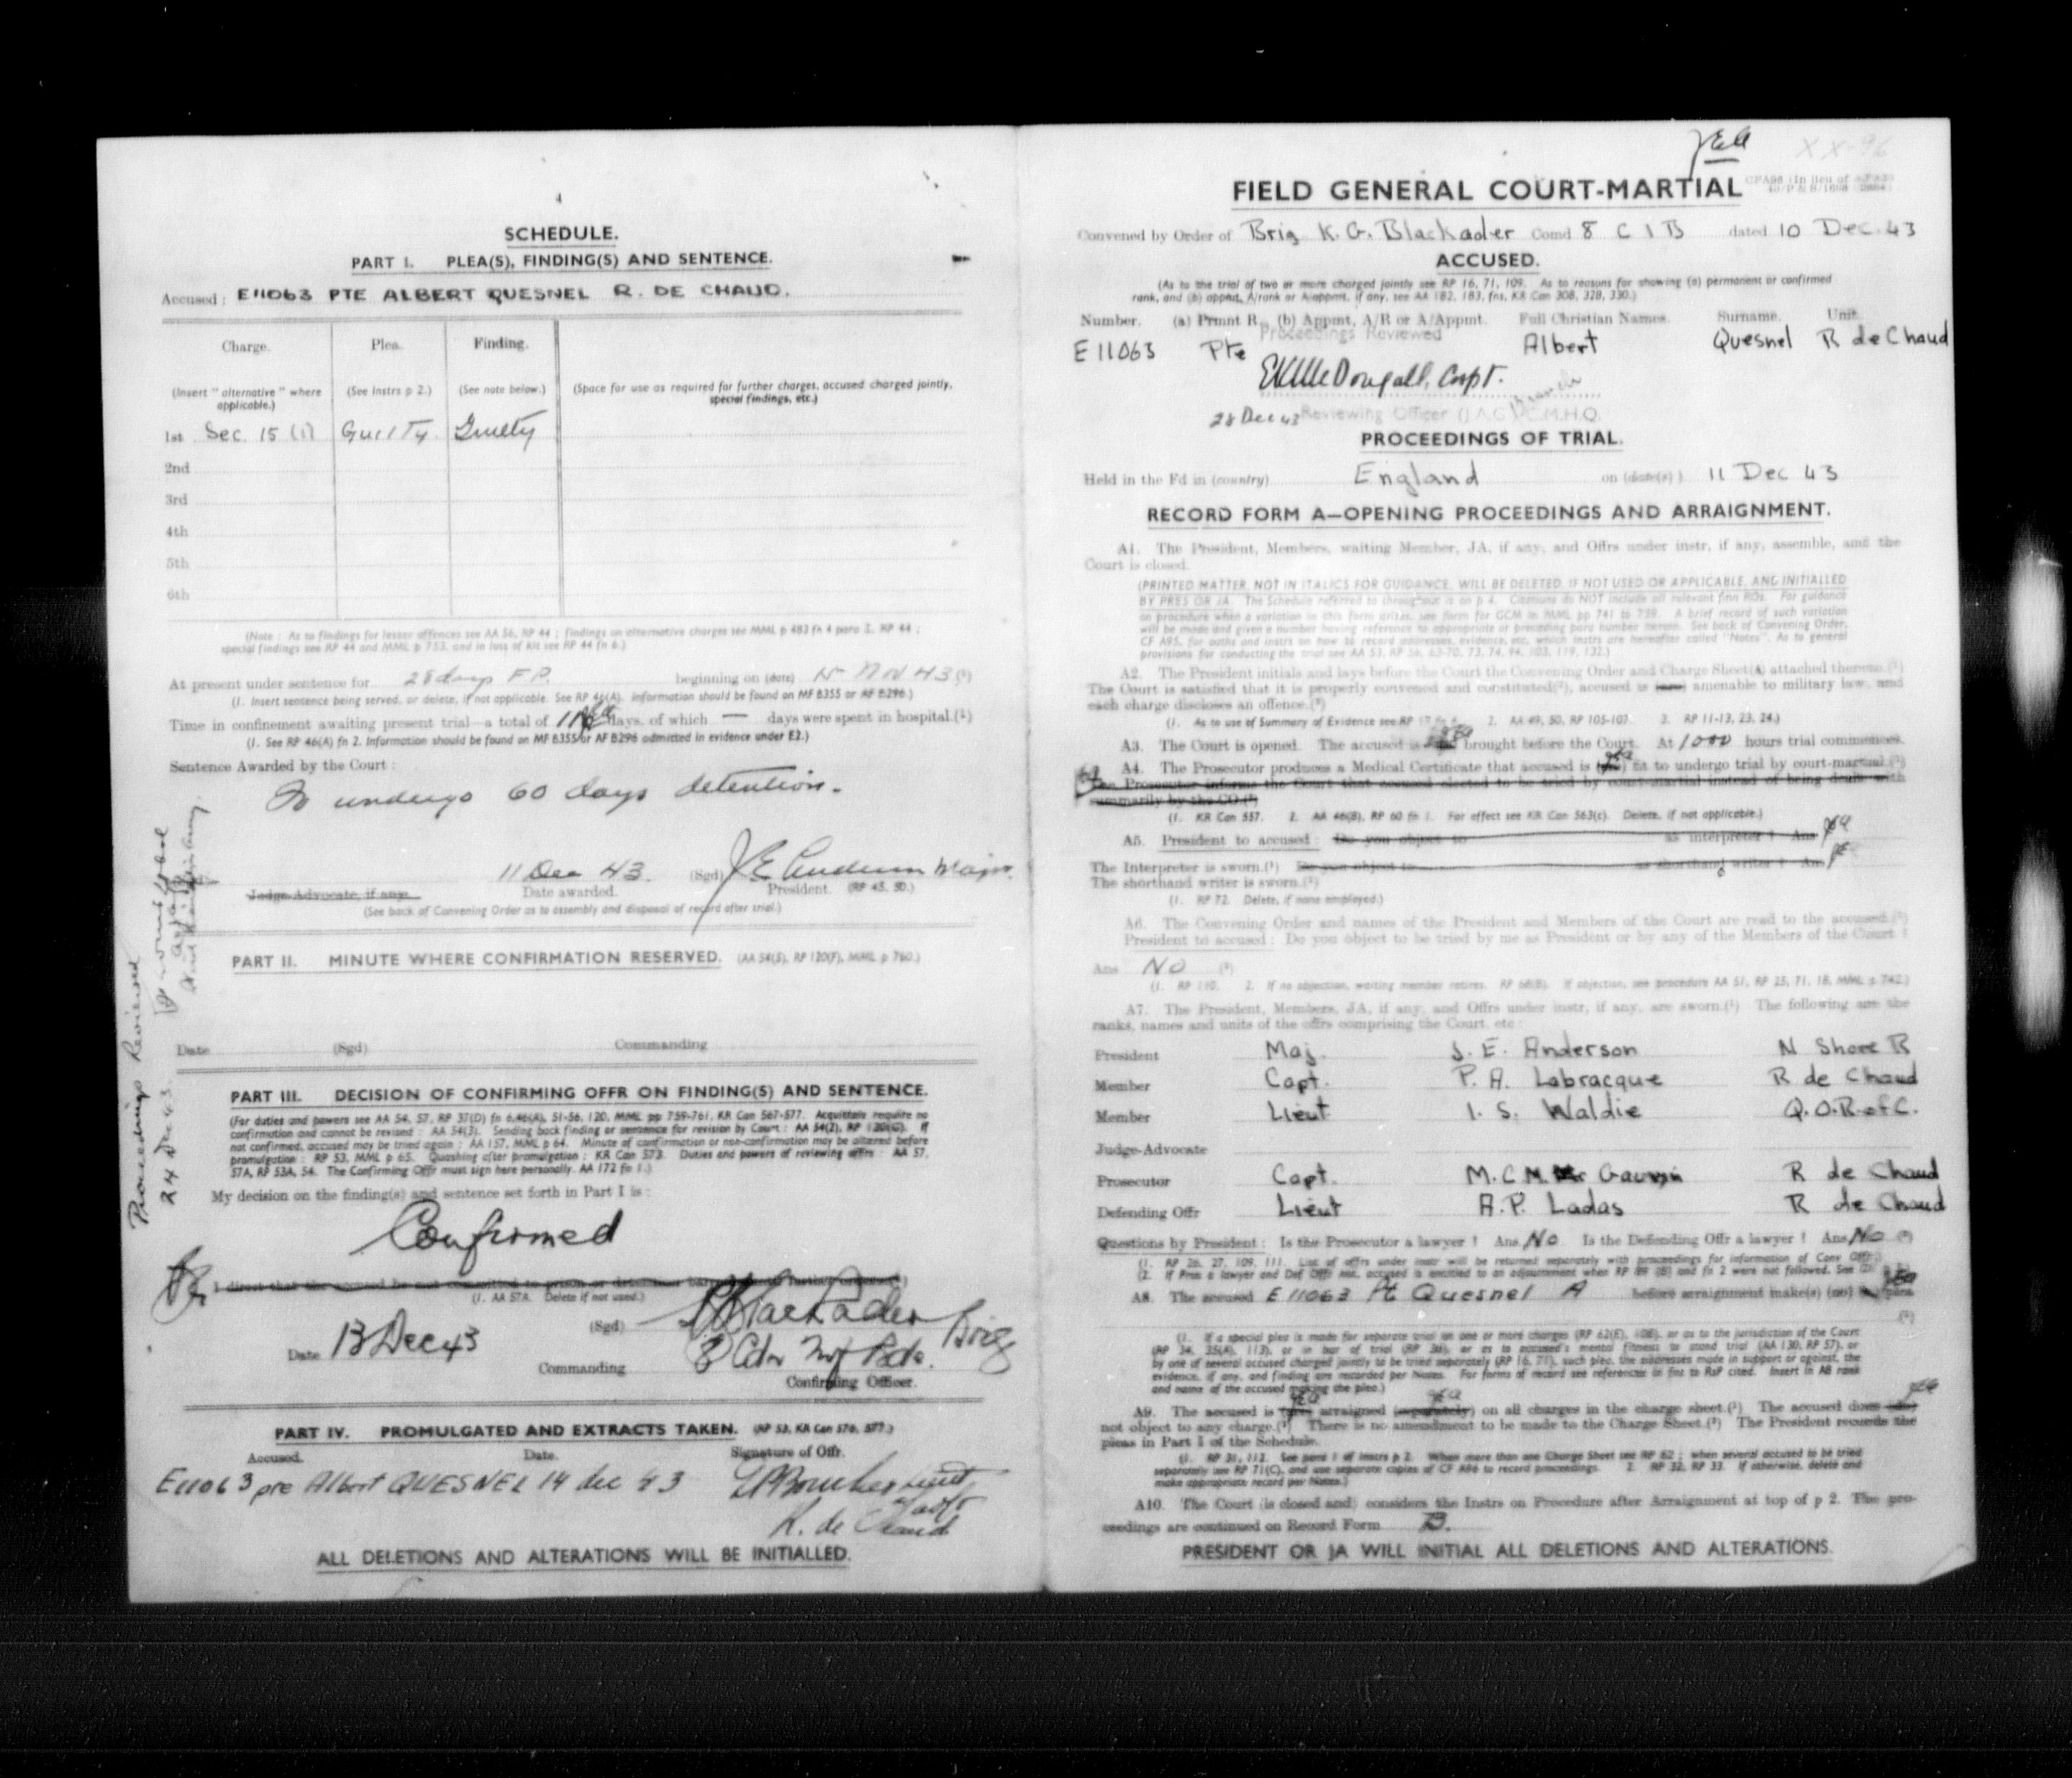 4
SCHEDULE.
PART I. PLEA(S), FINDING(S) AND SENTENCE.
Accused : E11063 PTE ALBERT QUESNEL R. DE CHAUD.
Charge. Plea. Finding.
(Insert " alternative " where applicable.) (See Instrs p 2.) (See note below.) (Space for use as required for further charges, accused charged jointly, special findings, etc.)
1st Sec. 15 (1) Guilty. Guilty
2nd
3rd
4th
5th
6th
(Note : As to findings for lesser offences see AA 56, RP 44 ; findings on alternative charges see MML p 483 fn 4 para 2, RP 44 ;
special findings see RP 44 and MML p 753, and in loss of kit see RP 44 fn 6.)
At present under sentence for 28 days F.P. beginning on (date) Nov 43 (1)
(1. Insert sentence being served, or delete, if not applicable. See RP 46(A). Information should be found on MF B355 or AF B296.)
Time in confinement awaiting present trial—a total of days, of which — days were spent in hospital.(1)
(1. See RP 46(A) fn 2. Information should be found on MF B355 or AF B296 admitted in evidence under E2.)
Sentence Awarded by the Court :
To undergo 60 days detention.
11 Dec 43. (Sgd) J E Anderson Major
Judge-Advocate, if any. Date awarded. President. (RP 45, 50.)
(See back of Convening Order as to assembly and disposal of record after trial.)
PART II. MINUTE WHERE CONFIRMATION RESERVED. (AA 54(5), RP 120(F), MML p 760.)
Date (Sgd) Commanding
PART III. DECISION OF CONFIRMING OFFR ON FINDING(S) AND SENTENCE.
(For duties and powers see AA 54, 57, RP 37(D) fn 6,46(A), 51-56, 120, MML pp 759-761, KR Can 567-577. Acquittals require no
confirmation and cannot be revised : AA 54(3). Sending back finding or sentence for revision by Court : AA 54(2), RP 120(G). If
not confirmed, accused may be tried again : AA 157, MML p 64. Minute of confirmation or non-confirmation may be altered before
promulgation : RP 53, MML p 65. Quashing after promulgation : KR Can 573. Duties and powers of reviewing offrs : AA 57,
57A, RP 53A, 54. The Confirming Offr must sign here personally. AA 172 fn 1.)
My decision on the finding(s) and sentence set forth in Part I is :
Confirmed
I direct that the accused be not committed to prison or detention
(1. AA 57A. Delete if not used.)
Date 13 Dec 43 (Sgd) Blackader Brig
Commanding 8 Cdn Inf Bde.
Confirming Officer.
PART IV. PROMULGATED AND EXTRACTS TAKEN. (RP 53, KR Can 576, 577.)
Accused. Date. Signature of Offr.
E11063 pte Albert QUESNEL 14 dec 43
R. de Chaud
ALL DELETIONS AND ALTERATIONS WILL BE INITIALLED.
Proceedings Reviewed
24 Dec 43.
FIELD GENERAL COURT-MARTIAL
Convened by Order of Brig K. G. Blackader Comd 8 C I B dated 10 Dec. 43
ACCUSED.
(As to the trial of two or more charged jointly see RP 16, 71, 109. As to reasons for showing (a) permanent or confirmed
rank, and (b) appmt, A/rank or A/appmt, if any, see AA 182, 183, fns, KR Can 308, 328, 330.)
Number. (a) Prmnt R. (b) Appmt, A/R or A/Appmt. Full Christian Names. Surname. Unit.
Proceedings Reviewed
E 11063 Pte Albert Quesnel R de Chaud
McDougall, Capt.
28 Dec 43 Reviewing Officer (J.A.G. Branch) C.M.H.Q.
PROCEEDINGS OF TRIAL.
Held in the Fd in (country) England on (date(s)) 11 Dec 43
RECORD FORM A—OPENING PROCEEDINGS AND ARRAIGNMENT.
A1. The President, Members, waiting Member, JA, if any, and Offrs under instr, if any, assemble, and the
Court is closed.
(PRINTED MATTER NOT IN ITALICS FOR GUIDANCE, WILL BE DELETED, IF NOT USED OR APPLICABLE, AND INITIALLED
BY PRES OR JA. The Schedule referred to throughout is on p 4. Citations do NOT include all relevant fmn ROs. For guidance
on procedure when a variation in this form arises, see form for GCM in MML pp 741 to 759. A brief record of such variation
will be made and given a number having reference to appropriate or preceding para number herein. See back of Convening Order,
CF A95, for oaths and instrs on how to record addresses, evidence, etc, which instrs are hereafter called "Notes". As to general
provisions for conducting the trial see AA 53, RP 56, 63-70, 73, 74, 94, 103, 119, 132.)
A2. The President initials and lays before the Court the Convening Order and Charge Sheet(s) attached thereto.(1)
The Court is satisfied that it is properly convened and constituted(2), accused is (are) amenable to military law, and
each charge discloses an offence.(3)
(1. As to use of Summary of Evidence see RP 17 fn 2. AA 49, 50, RP 105-107. 3. RP 11-13, 23, 24.)
A3. The Court is opened. The accused is brought before the Court. At 1000 hours trial commences.
A4. The Prosecutor produces a Medical Certificate that accused is fit to undergo trial by court-martial.(1)
The Prosecutor informs the Court that accused elected to be tried by court-martial instead of being dealt with
summarily by the CO.(2)
(1. KR Can 557. 2. AA 46(8), RP 60 fn 1. For effect see KR Can 563(c). Delete, if not applicable.)
A5. President to accused : Do you object to as interpreter ? Ans
The Interpreter is sworn.(1) Do you object to as shorthand writer ? Ans
The shorthand writer is sworn.(1)
(1. RP 72. Delete, if none employed.)
A6. The Convening Order and names of the President and Members of the Court are read to the accused.(1)
President to accused : Do you object to be tried by me as President or by any of the Members of the Court ?
Ans NO (2)
(1. RP 110. 2. If no objection, waiting member retires. RP 68(B). If objection, see procedure AA 51, RP 25, 71, 18, MML p 742.)
A7. The President, Members, JA, if any, and Offrs under instr, if any, are sworn.(1) The following are the
ranks, names and units of the offrs comprising the Court, etc :
President Maj. J. E. Anderson N Shore R
Member Capt. P. A. Labracque R de Chaud
Member Lieut I. S. Waldie Q.O.R. of C.
Judge-Advocate
Prosecutor Capt. M. C. R de Chaud
Defending Offr Lieut A.P. Ladas R de Chaud
Questions by President : Is the Prosecutor a lawyer ? Ans No Is the Defending Offr a lawyer ? Ans No (2)
(1. RP 26, 27, 109, 111. List of offrs under instr will be returned separately with proceedings for information of Conv Offr.
(2. If Pros a lawyer and Def Offr not, accused is entitled to an adjournment when RP 89 (B) and fn 2 were not followed.
A8. The accused E 11063 Pte Quesnel A before arraignment make(s) (no)
(1. If a special plea is made for separate trial on one or more charges (RP 62(E), 108), or as to the jurisdiction of the Court
(RP 34, 35(A), 113), or in bar of trial (RP 36), or as to accused's mental fitness to stand trial (AA 130, RP 57), or
by one of several accused charged jointly to be tried separately (RP 16, 71), such plea, the addresses made in support or against, the
evidence, if any, and finding are recorded per Notes. For forms of record see references in fns to RsP cited. Insert in A8 rank
and name of the accused making the plea.)
A9. The accused is arraigned (separately) on all charges in the charge sheet.(1) The accused does
not object to any charge.(2) There is no amendment to be made to the Charge Sheet.(2) The President records the
pleas in Part I of the Schedule.
(1. RP 31, 112. See para 1 of Instrs p 2. When more than one Charge Sheet see RP 62 ; when several accused to be tried
separately see RP 71(C), and use separate copies of CF A86 to record proceedings. 2. RP 32, RP 33. If otherwise, delete and
make appropriate record per Notes.)
A10. The Court (is closed and) considers the Instrs on Procedure after Arraignment at top of p 2. The pro-
ceedings are continued on Record Form B.
PRESIDENT OR JA WILL INITIAL ALL DELETIONS AND ALTERATIONS.